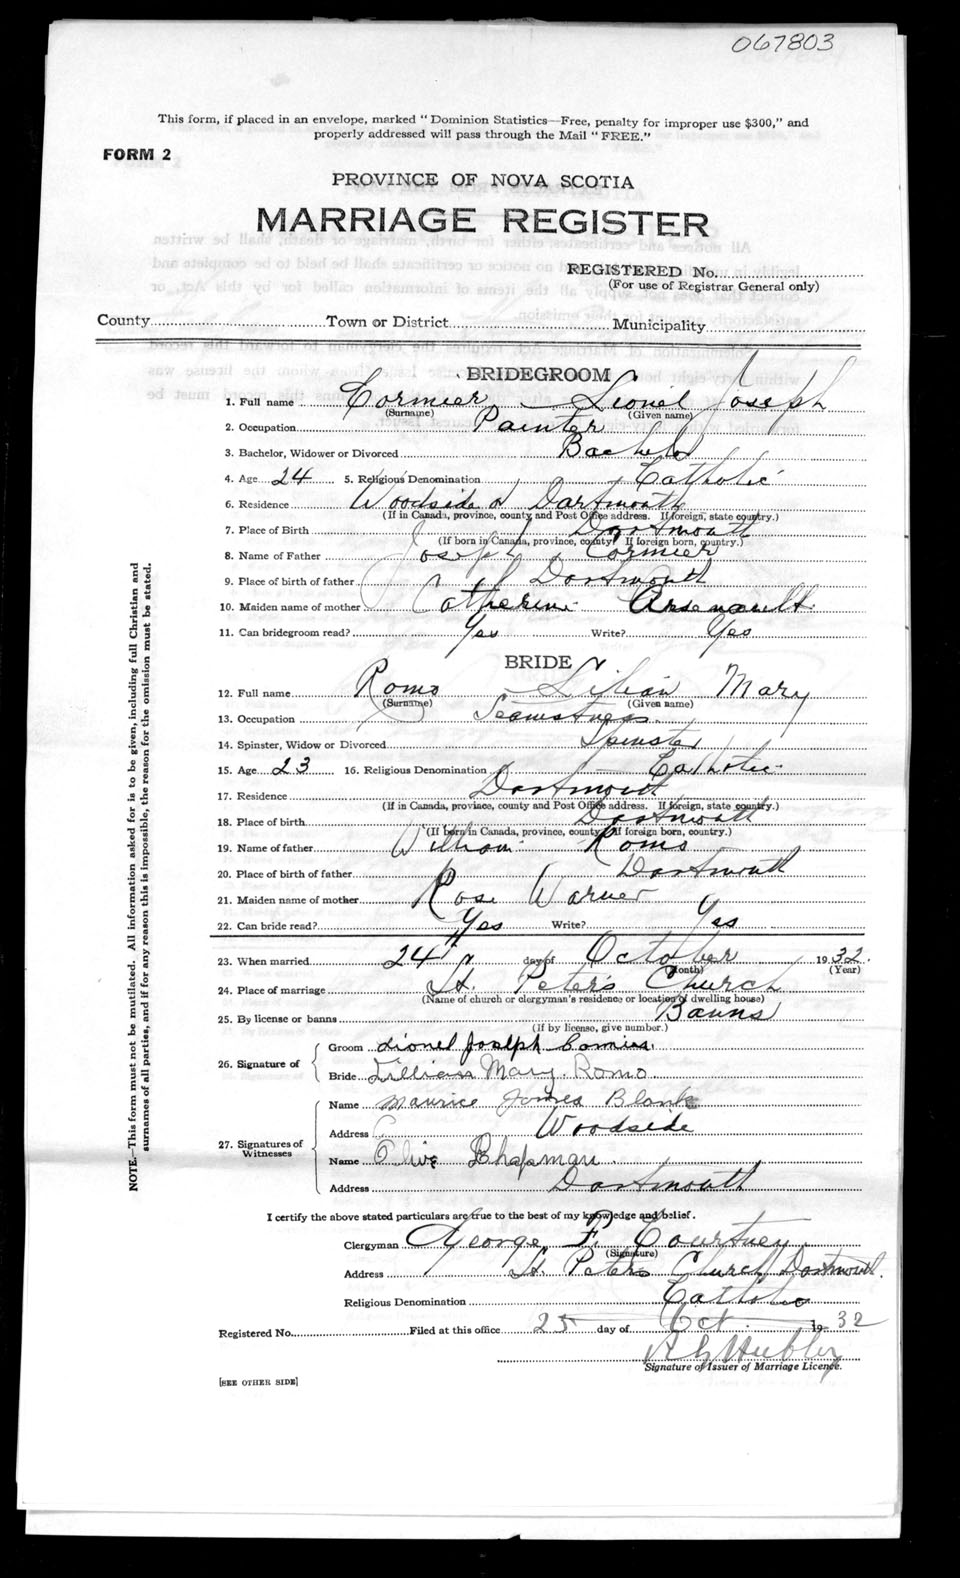 067803
This form, if placed in an envelope, marked "Dominion Statistics—Free, penalty for improper use $300," and
properly addressed will pass through the Mail "FREE."
FORM 2
PROVINCE OF NOVA SCOTIA
MARRIAGE REGISTER
REGISTERED No.
(For use of Registrar General only)
County Town or District Municipality
BRIDEGROOM
1. Full name Cormier Lionel Joseph
(Surname) (Given name)
2. Occupation Painter
3. Bachelor, Widower or Divorced Bachelor
4. Age 24 5. Religious Denomination Catholic
6. Residence Woodside Dartmouth
(If in Canada, province, county and Post Office address. If foreign, state country.)
7. Place of Birth Dartmouth
(If born in Canada, province, county. If foreign born, country.)
8. Name of Father Joseph Cormier
9. Place of birth of father Dartmouth
10. Maiden name of mother Catherine Arsenault
11. Can bridegroom read? Yes Write? Yes
BRIDE
12. Full name Romo Lilian Mary
(Surname) (Given name)
13. Occupation Seamstress
14. Spinster, Widow or Divorced Spinster
15. Age 23 16. Religious Denomination Catholic
17. Residence Dartmouth
(If in Canada, province, county and Post Office address. If foreign, state country.)
18. Place of birth Dartmouth
(If born in Canada, province, county. If foreign born, country.)
19. Name of father William Romo
20. Place of birth of father Dartmouth
21. Maiden name of mother Rose Warner
22. Can bride read? Yes Write? Yes
23. When married 24th day of October 1932.
(Month) (Year)
24. Place of marriage St. Peter's Church
(Name of church or clergyman's residence or location of dwelling house)
25. By license or banns Banns
(If by license, give number.)
26. Signature of Groom Lionel Joseph Cormier
Bride Lillian Mary Romo
27. Signatures of Witnesses Name Maurice James Blank
Address Woodside
Name Olive Chapman
Address Dartmouth
I certify the above stated particulars are true to the best of my knowledge and belief.
Clergyman George F. Courtney
(Signature)
Address St. Peters Church Dartmouth.
Religious Denomination Catholic
Registered No. Filed at this office 25 day of Oct 1932
A G Hubley
Signature of Issuer of Marriage Licence.
[SEE OTHER SIDE]
NOTE.—This form must not be mutilated. All information asked for is to be given, including full Christian and
surnames of all parties, and if for any reason this is impossible, the reason for the omission must be stated.